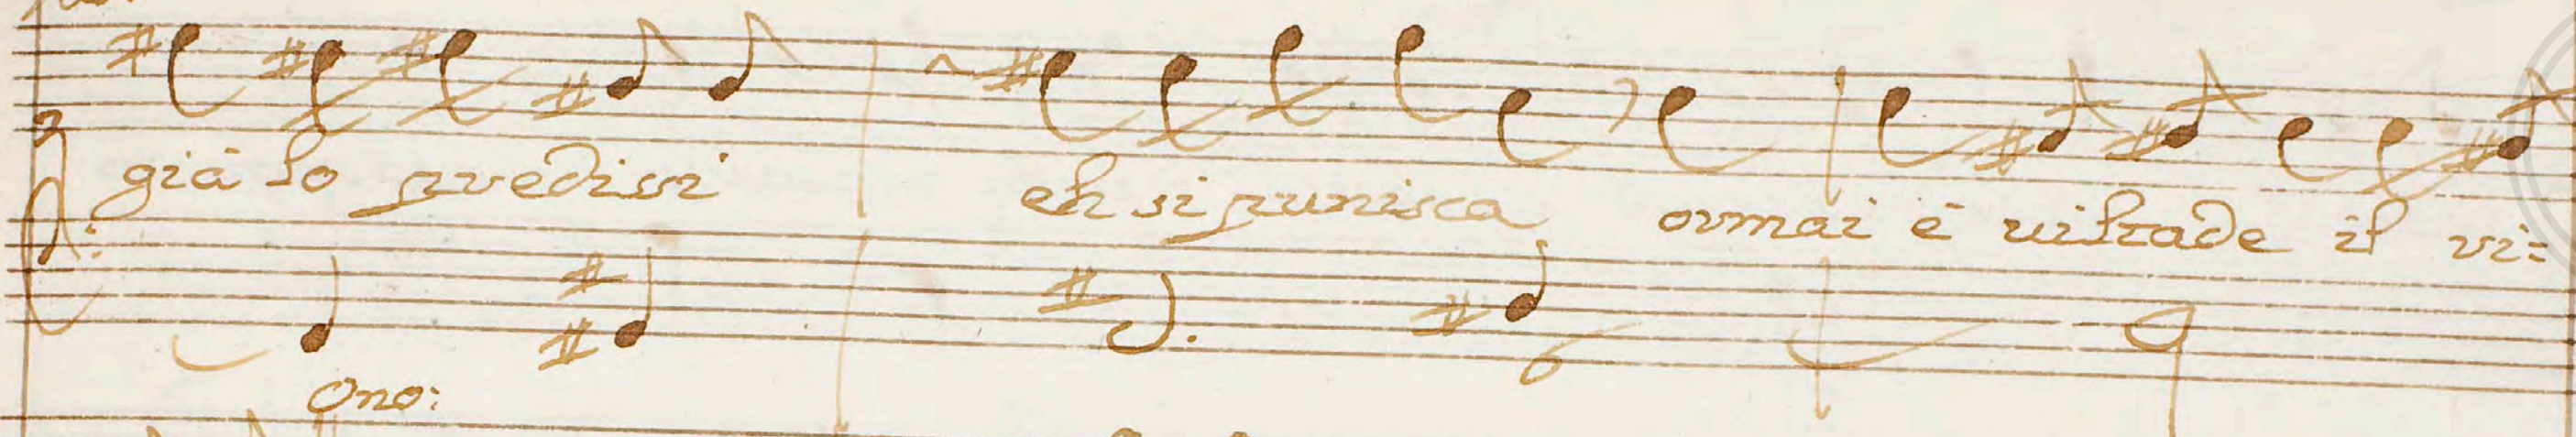 già lo predissi eh si punisca ormai è viltade il vi=
6
Ono: